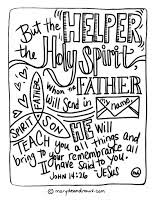 But the "HELPER,
the Holy Spirit,
Whom the FATHER
Will Send in My Name,
FATHER
SPIRIT SON HE Will
TEACH you all things and
bring to your remembrance all
I have said to you.
JOHN 14:26 *JESUS
© marydeandraws.com